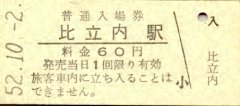 52.10.-2.
普通入場券
比立内駅
料金60円
発売当日1回限り有効
旅客車内に立ち入ることは
できません。
小
入
比立内